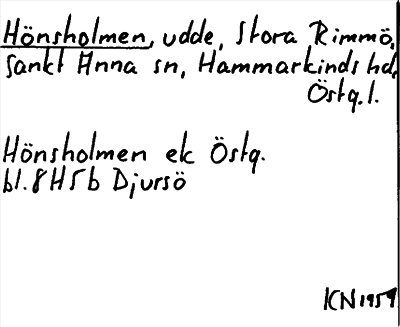 Hönsholmen, udde, Stora Rimmö,
Sankt Anna sn, Hammarkinds hd,
Östg.l.
Hönsholmen ek Östg.
bl. 8H5b Djursö
KN 1959